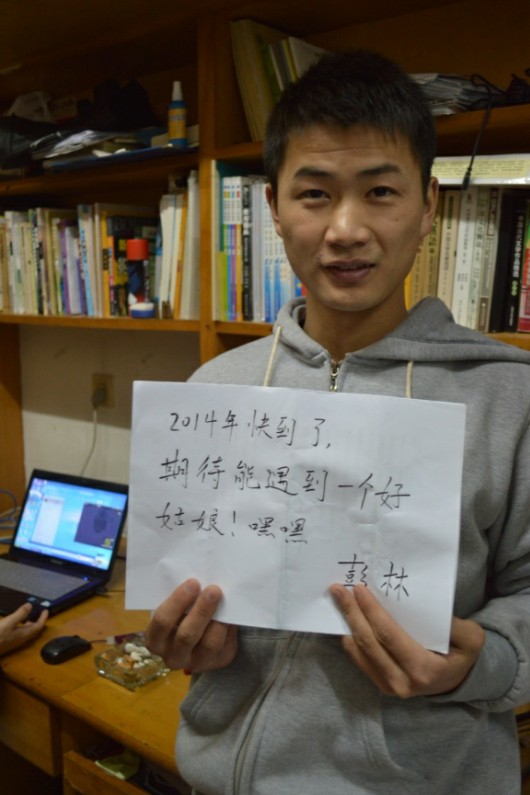 2014年快到了,
期待能遇到一个好
姑娘!嘿嘿
彭林